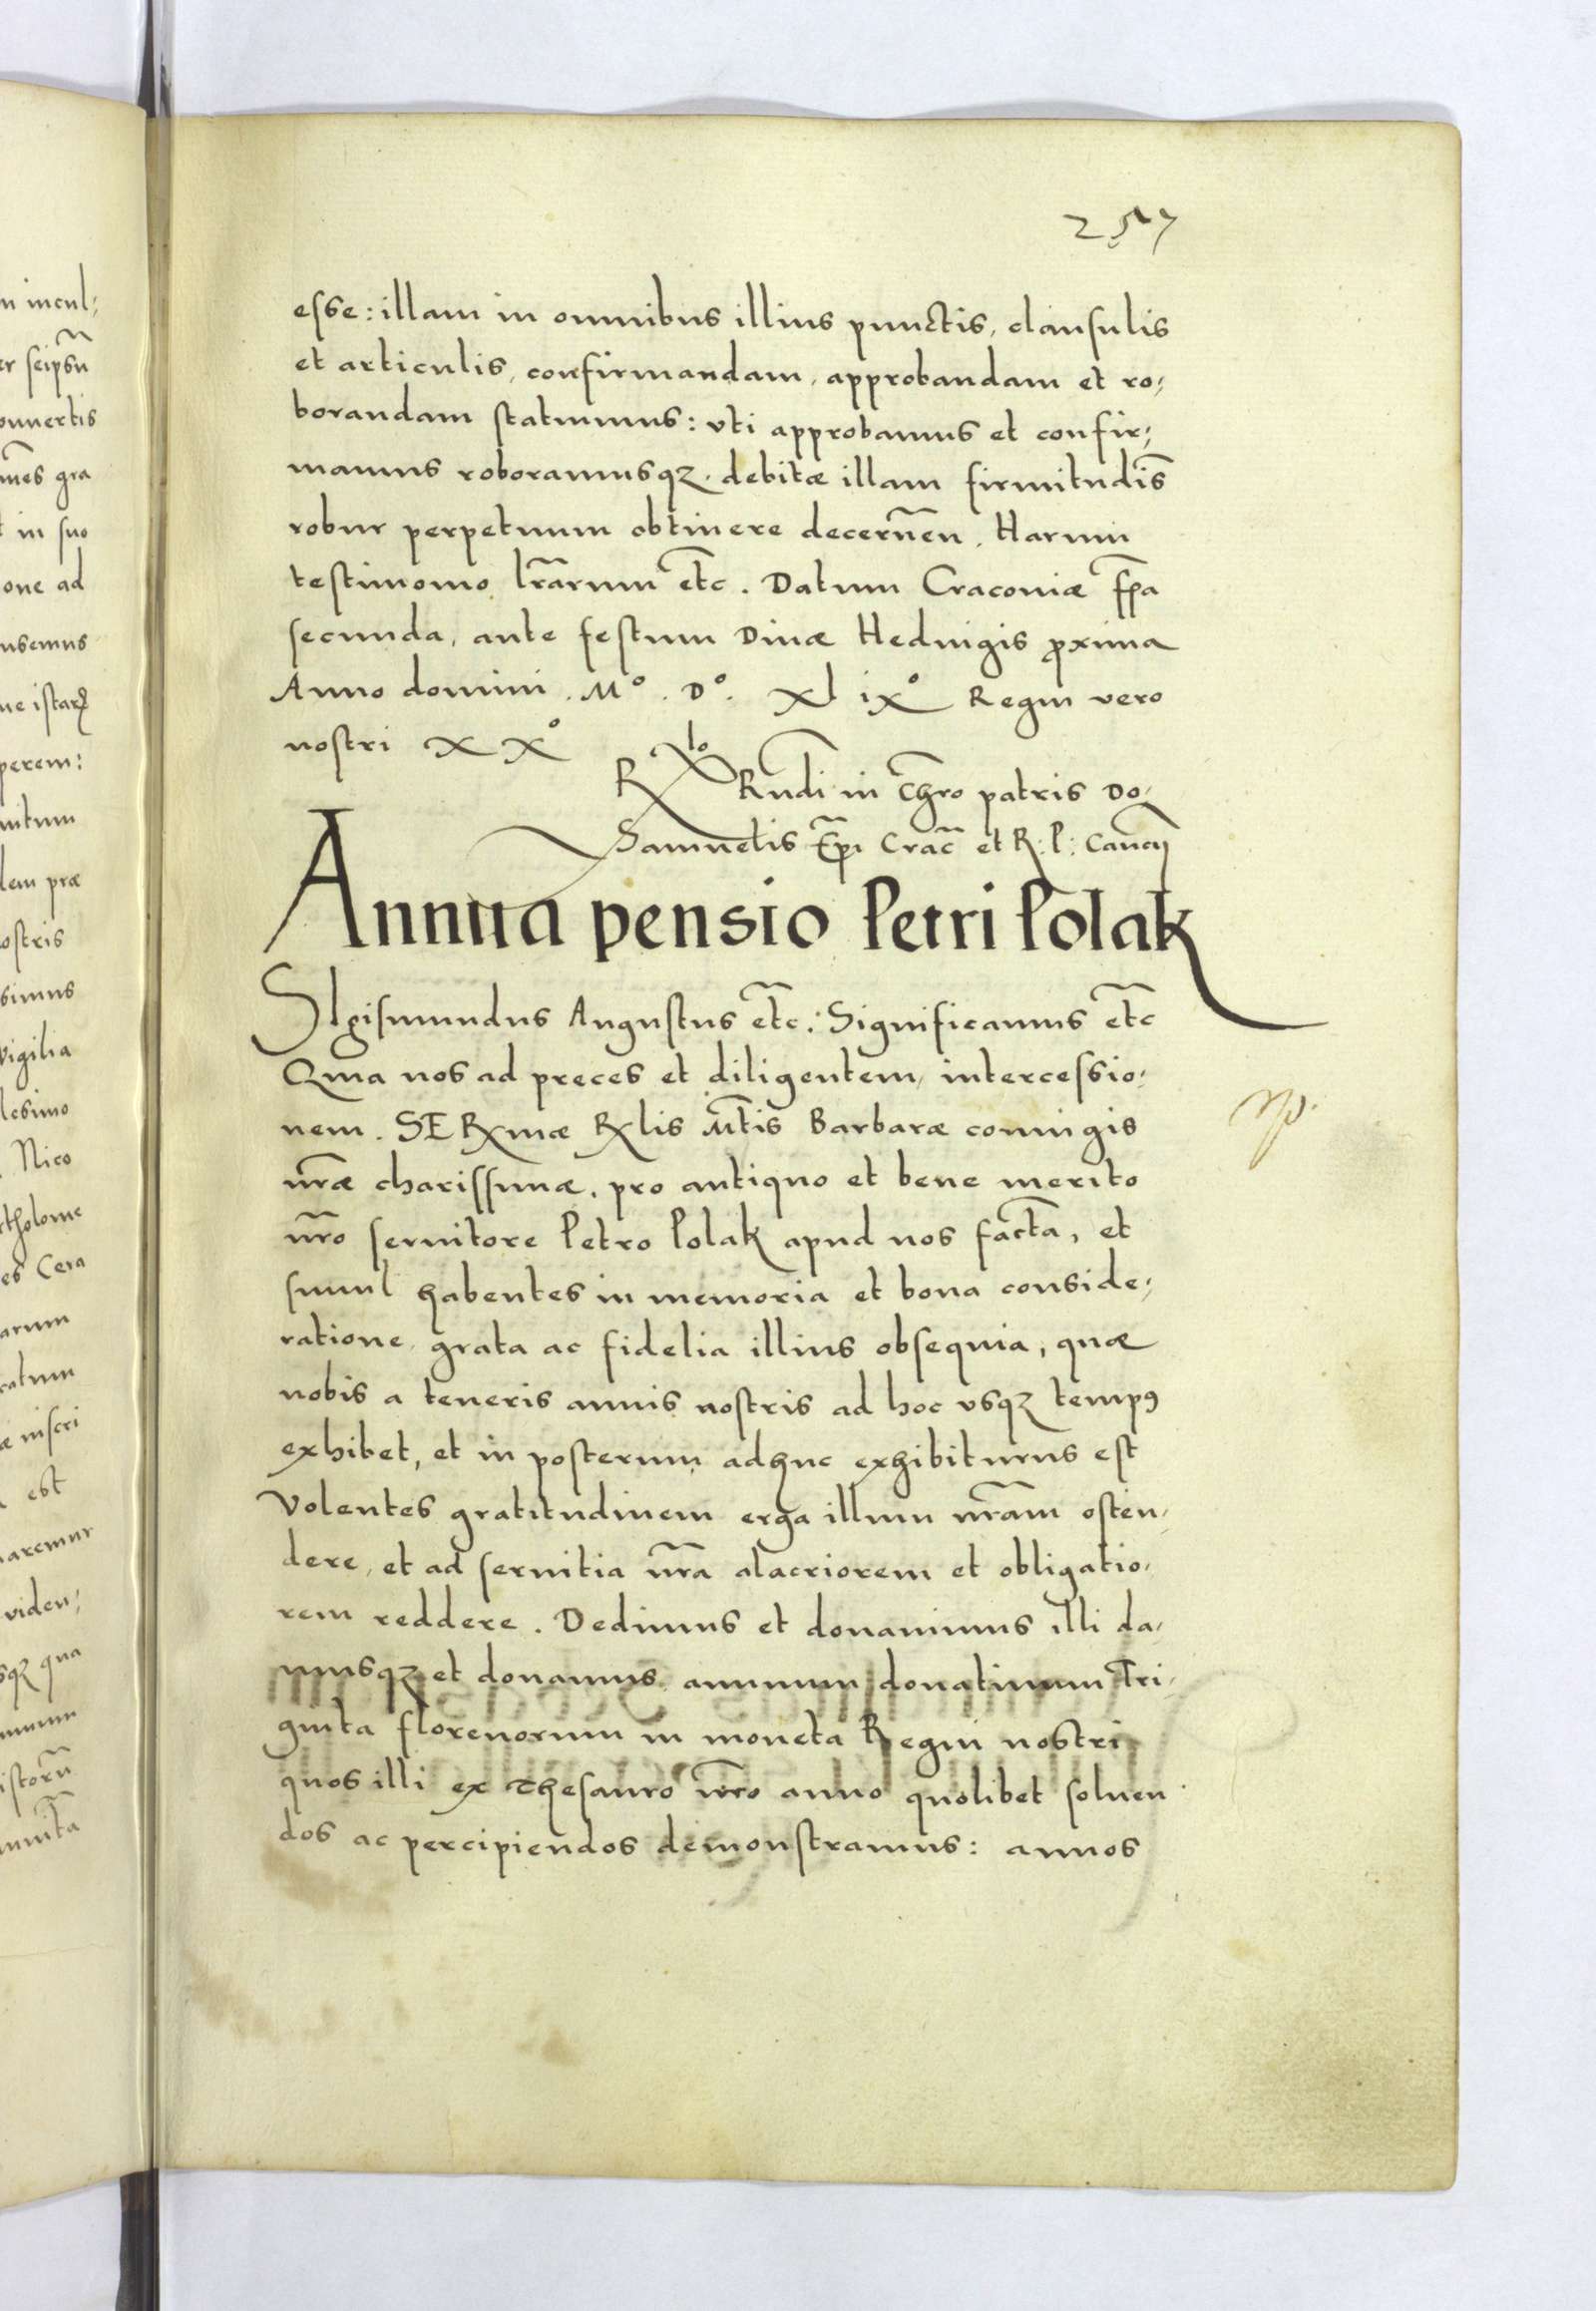 257
esse: illam in omnibus illius punctis, clausulis
et articulis, confirmandam, approbandam et ro-
borandam statuimus: vti approbamus et confir-
mamus roboramusqꝫ. debitæ illam firmitudīs
robur perpetuum obtinere decernēn. Harum
testimonio lr̄arum etc̄. Datum Cracoviæ fr̄ia
secunda, ante festum Diuæ Heduigis ꝓxima
Anno domini. Mº. Dº. xl ixº Regni vero
nostri xxº
Rlo Rn̄di in Chr̄o patris Do-
Samuelis Ep̄i Crac̄ et R: P: Cancrij
Annua pensio Petri Polak
SIgismundus Augustus etc̄: Significamus etc̄
Quia nos ad preces et diligentem, intercessio-
nem. SERxmæ Rxlis Mt̄is Barbaræ coniugis
nr̄æ charissimæ, pro antiquo et bene merito
nr̄o seruitore Petro Polak apud nos facta, et
simul habentes in memoria et bona conside-
ratione, grata ac fidelia illius obsequia, quæ
nobis a teneris annis nostris ad hoc vsqꝫ tempꝰ
exhibet, et in posterum adhuc exhibiturus est
Volentes gratitudinem erga illum nr̄am osten-
dere, et ad seruitia nr̄a alacriorem et obligatio-
rem reddere. Dedimus et donauimus illi da-
musqꝫ et donamus annuum donatiuum Tri-
ginta florenorum in moneta Regni nostri
quos illi ex Thesauro nr̄o anno quolibet soluen
dos ac percipiendos demonstramus: annos